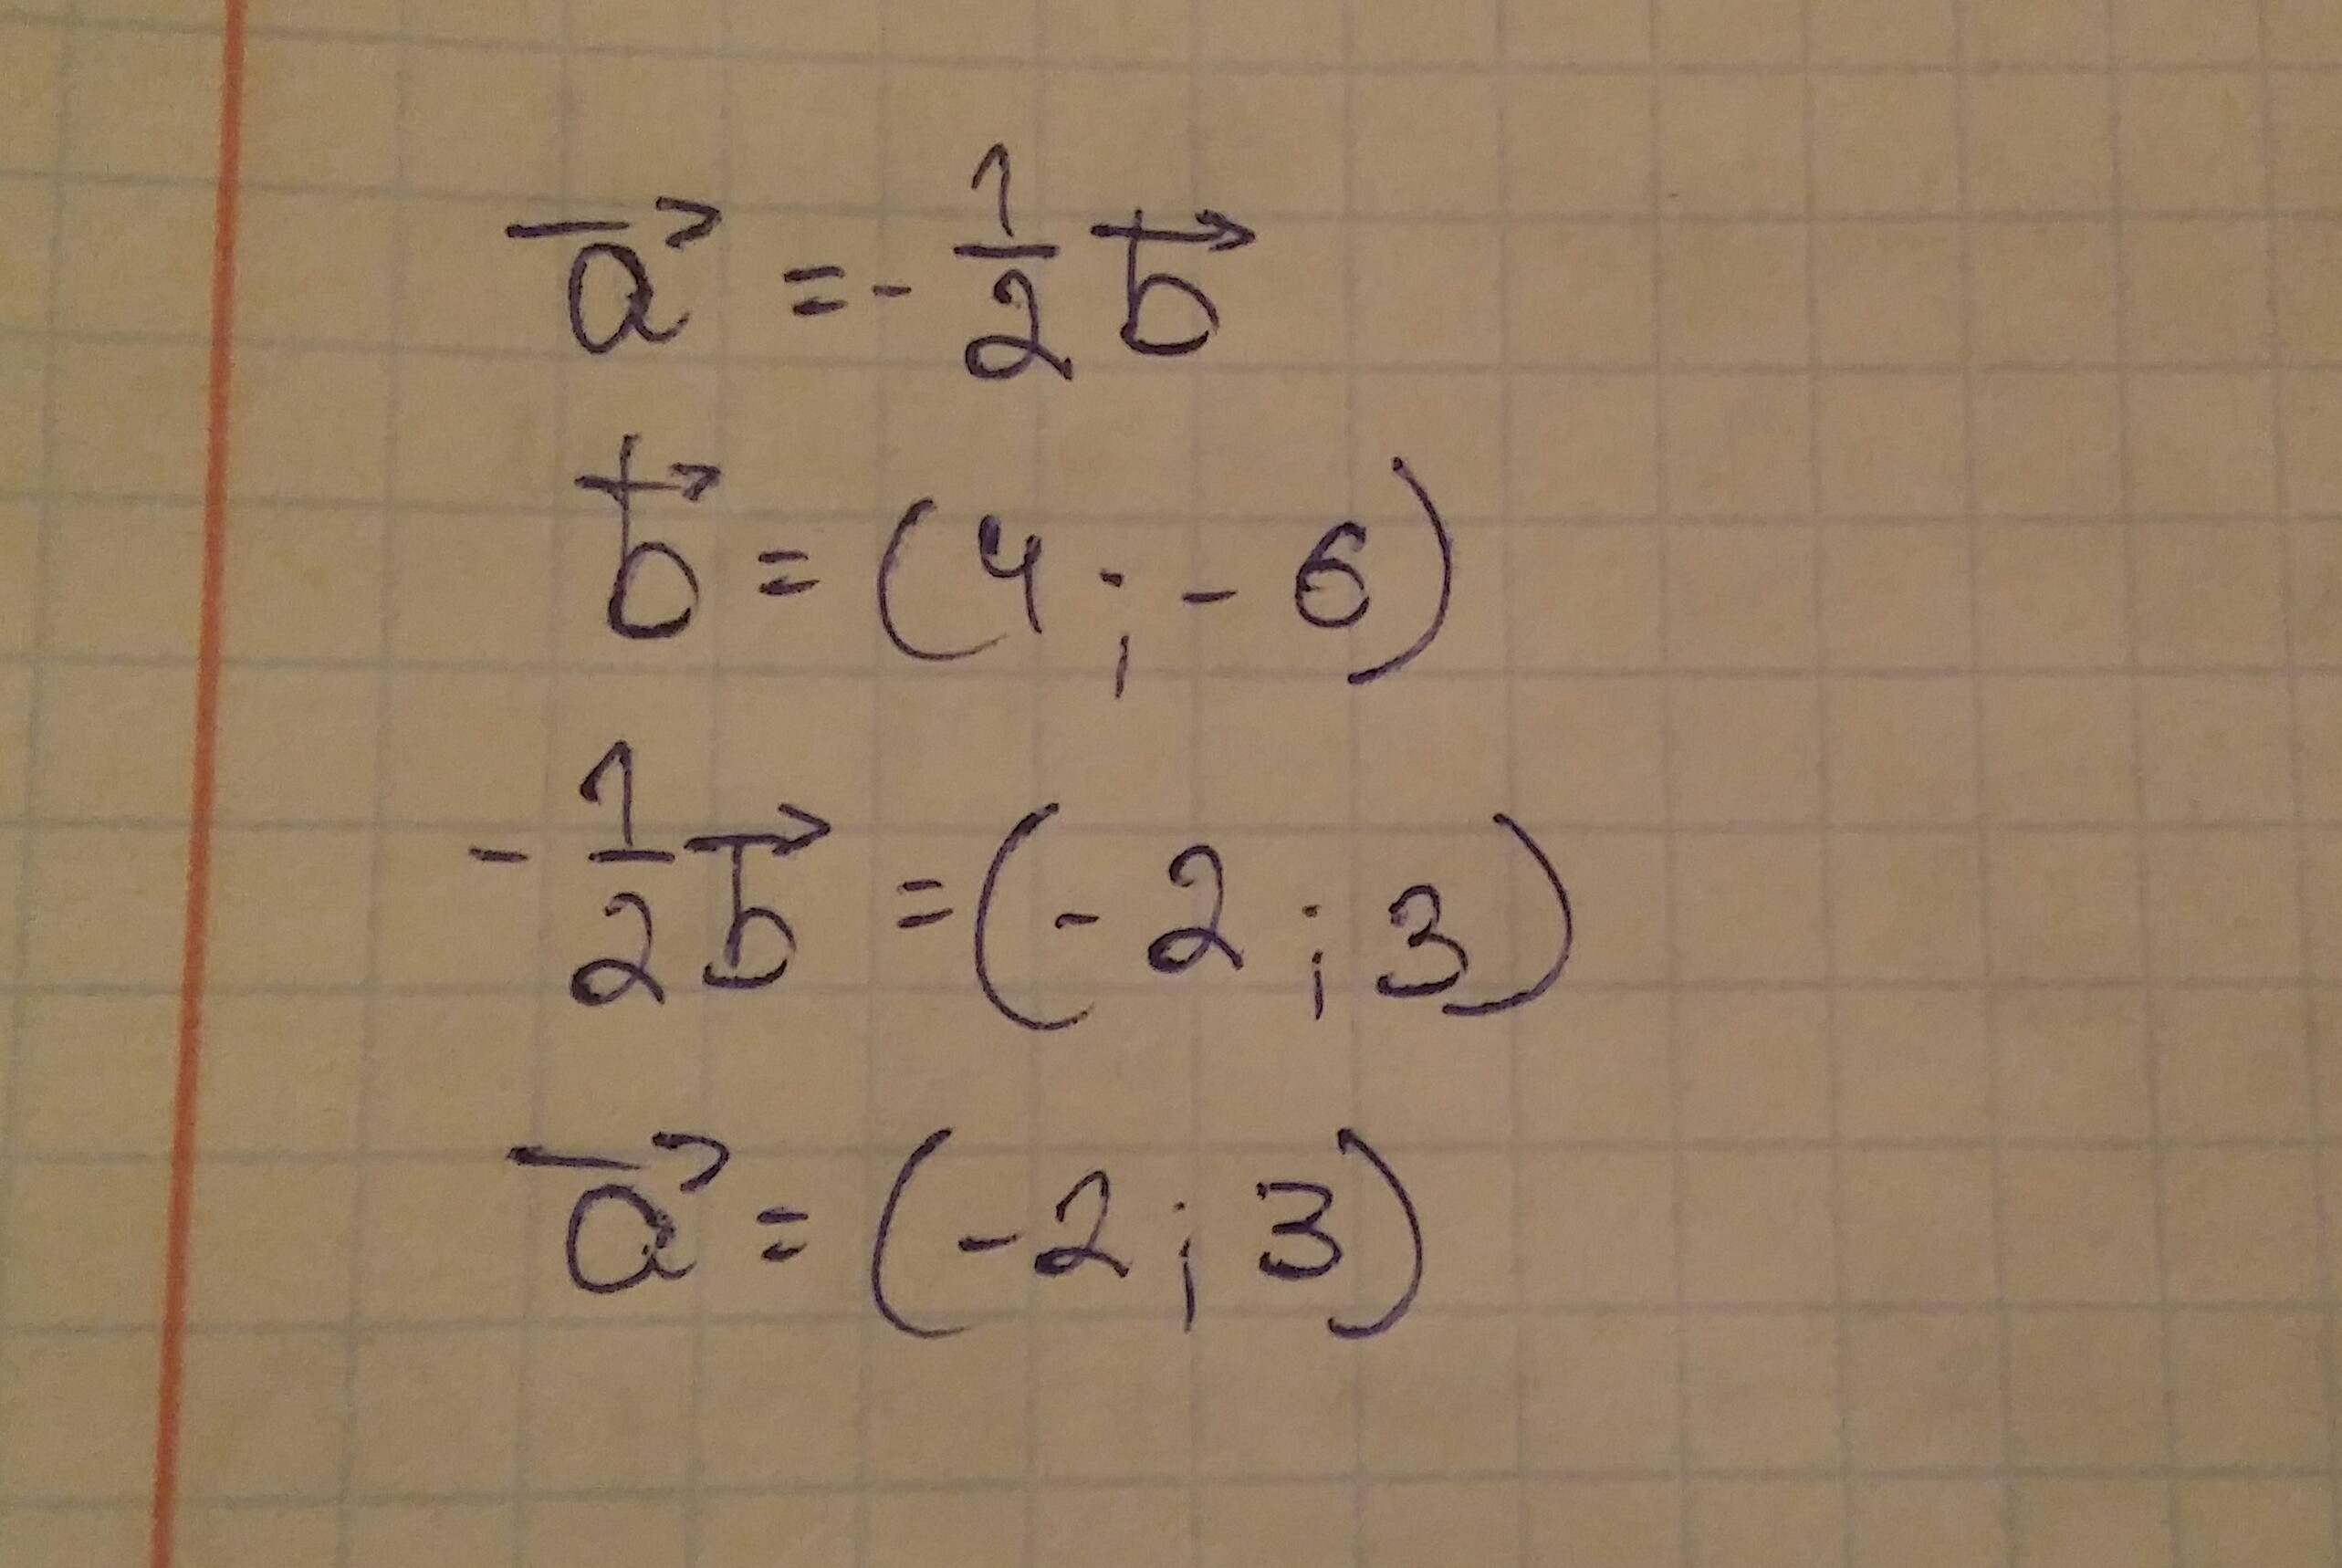 a⃗ = - 1/2 b⃗
b⃗ = (4 ; - 6)
- 1/2 b⃗ = (- 2 ; 3)
a⃗ = (-2 ; 3)